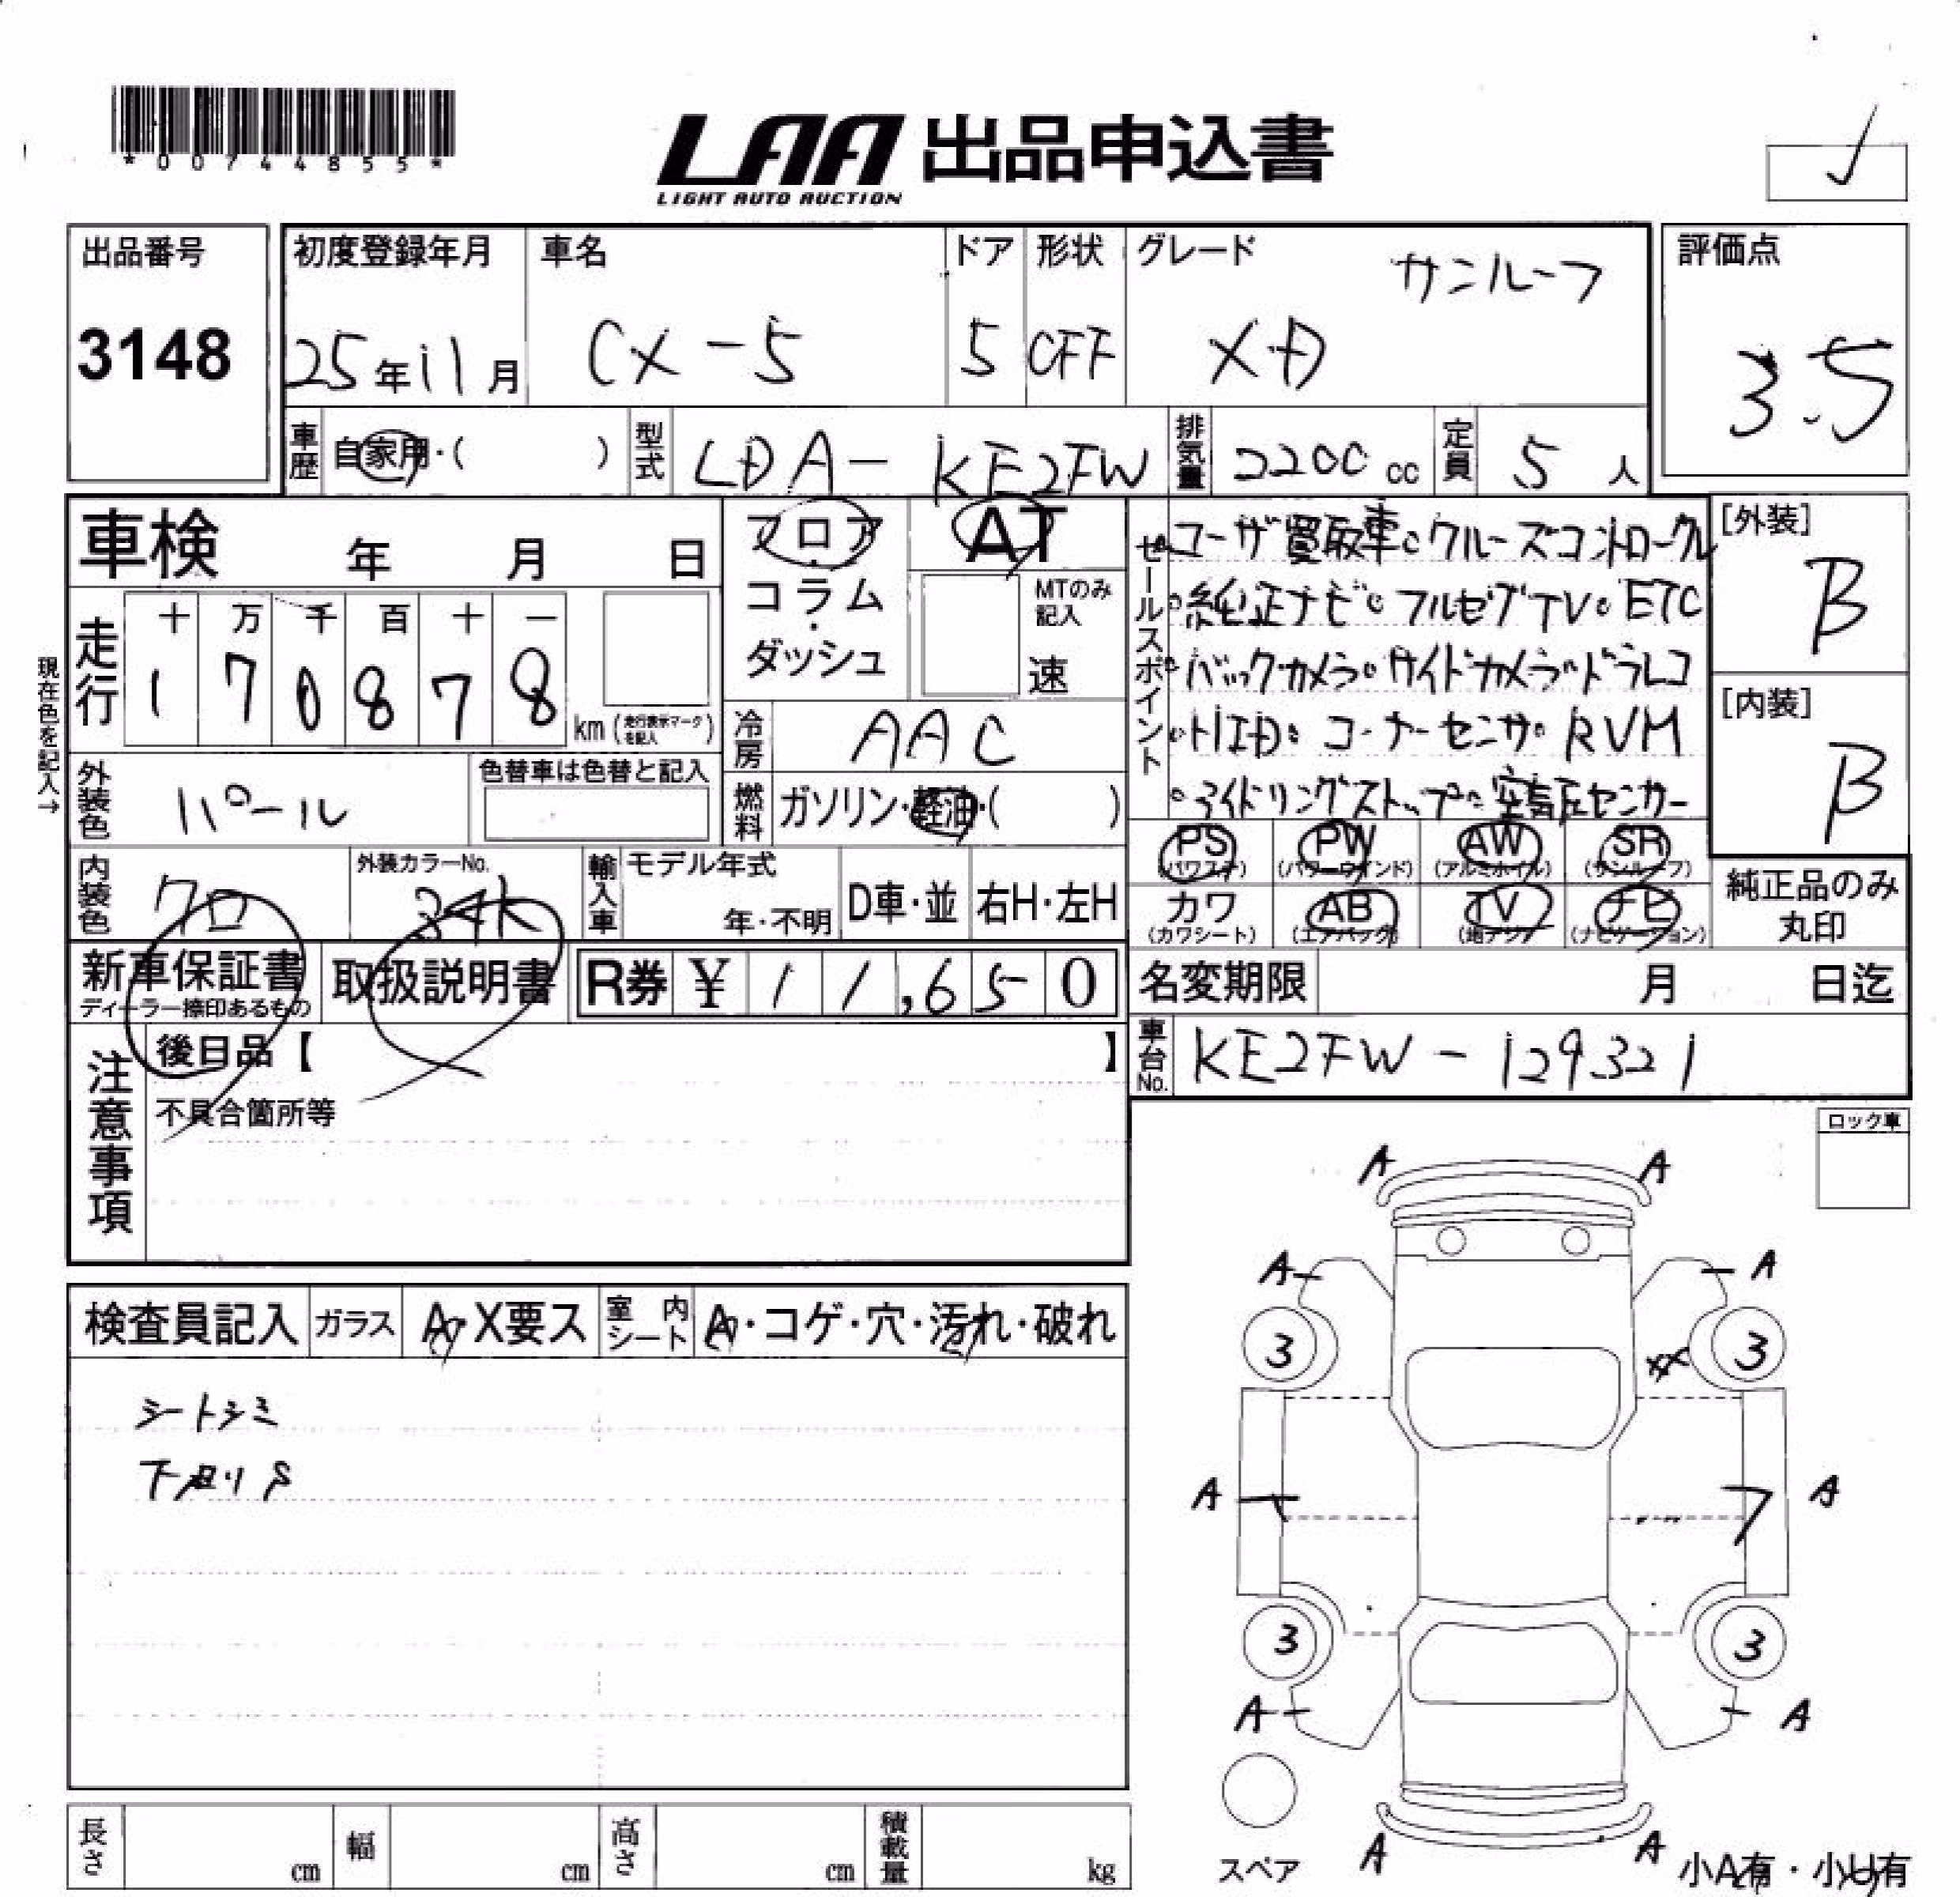 *00744855*
LAA 出品申込書
LIGHT AUTO AUCTION
出品番号
3148
初度登録年月
25年11月
車名
CX-5
ドア
5
形状
OFF
グレード
サンルーフ
XD
評価点
3.5
車歴
自家用・( )
型式
LDA-KE2FW
排気量
2200 cc
定員
5人
車検 年 月 日
フロア・コラム・ダッシュ
AT
MTのみ記入
速
現在色を記入→
走行
十 万 千 百 十 一
1 7 0 8 7 8
km (走行表示マークを記入)
冷房
AAC
燃料
ガソリン・軽油・( )
外装色
パール
色替車は色替と記入
内装色
クロ
外装カラーNo.
34K
輸入車
モデル年式
年・不明
D車・並
右H・左H
セールスポイント
ユーザ買取車。クルーズコントロール
。純正ナビ。フルセグTV。ETC
。バックカメラ。サイドカメラ。ドラレコ
。HID。コーナーセンサ。RVM
。アイドリングストップ。空気圧センサー
[外装]
B
[内装]
B
PS (パワステ)
PW (パワーウインド)
AW (アルミホイル)
SR (サンルーフ)
カワ (カワシート)
AB (エアバック)
TV (地デジ)
ナビ (ナビゲーション)
純正品のみ
丸印
新車保証書
ディーラー捺印あるもの
取扱説明書
R券 ¥ 11,650
名変期限 月 日迄
車台No.
KE2FW-129321
注意事項
後日品【 】
不具合箇所等
ロック車
検査員記入
ガラス
A・X要ス
室内シート
A・コゲ・穴・汚れ・破れ
シートシミ
下廻りS
A A
A A
3 3
XX
A A
3 3
A A
A A
スペア
小A有・小U有
長さ cm
幅 cm
高さ cm
積載量 kg